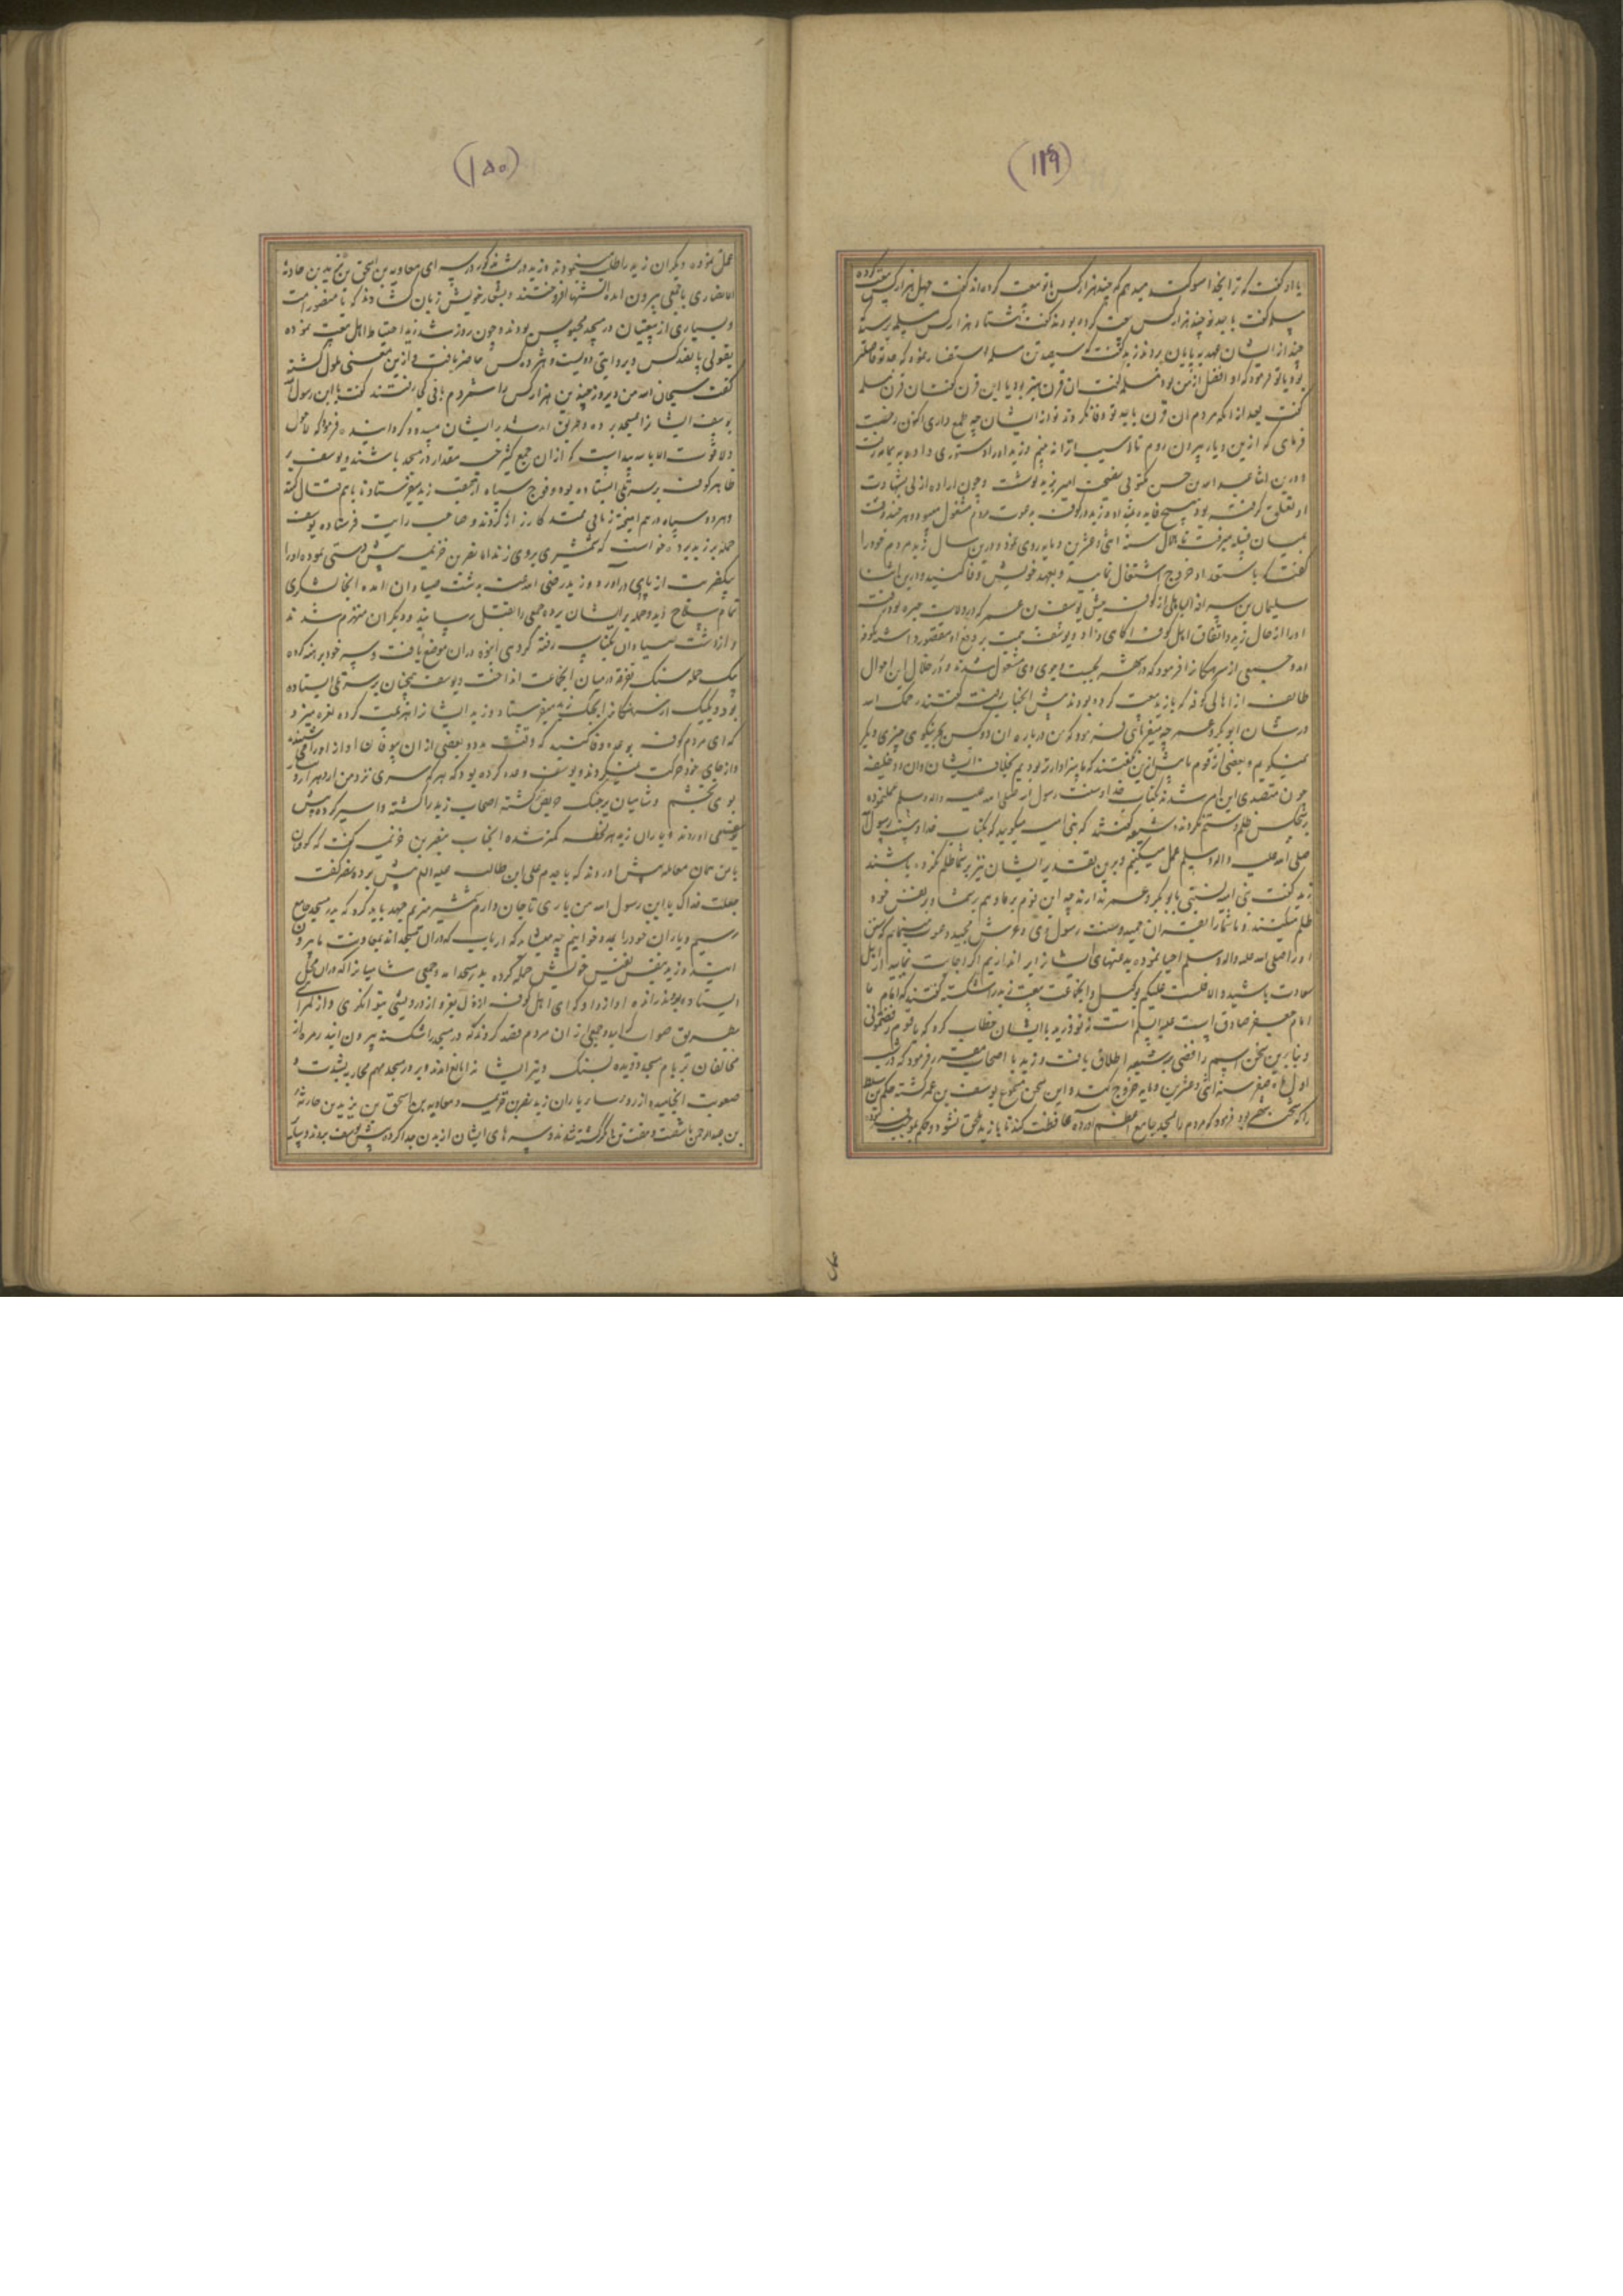 (۱۴۹)
با او گفت که ترا بخدا سوگند میدهم که چند هزار کس با تو بیعت کرده‌اند گفت چهل هزار کس بیعت کرده
سلمه گفت با جد تو چند هزار کس بیعت کرده بودند گفت هشتاد هزار کس سلمه پرسید
چند از ایشان عهد به پایان بردند زید گفت که سیصد تن سلمه استفسار نموده که جد تو فاضلتر
بود یا تو فرمود که او افضل از من بود سلمه گفت آن قرن بهتر بود یا این قرن گفت آن قرن سلمه
گفت بعد از آنکه مردم آن قرن با جد تو وفا نکردند تو از ایشان چه طمع داری اکنون رخصت
فرمای که ازین دیار بیرون روم تا آسیب ترا نه بینم و زید او را دستوری داده به یمامه رفت
و درین اثنا عبد الله بن حسن مکتوبی نصیحت آمیز بزید نوشت و چون اراده ازلی بشهادت
او تعلق گرفته بود هیچ فایده نداد و زید در کوفه به دعوت مردم مشغول میبود و هر چند وقت
بمیان قبیله میرفت تا هلال سنه اثنی و عشرین و مایه روی نمود و درین سال زید مردم خود را
گفت که باستعداد خروج اشتغال نمایید و بعهد خویش وفا کنید و درین اثنا
سلیمان بن سراقه الباهلی از کوفه پیش یوسف بن عمر که در ولایت حیره بود رفت
او را از حال زید و اتفاق اهل کوفه آگاهی داد و یوسف
آمد و جمعی از سرهنگان را فرمود که در شهر بجست و جوی وی مشغول شدند و در خلال این احوال
طایفه از اهالی کوفه که با زید بیعت کرده بودند پیش آنجناب رفته گفتند رحمک الله
در شان ابوبکر و عمر چه میفرمائی فرمود که من در باره آن دو کس بجز نیکوی چیزی دیگر
نمیگویم و بعضی از قوم ما پیش ازین گفتند که ما سزاوارتر بودیم بخلافت از ایشان و آن دو خلیفه
چون متصدی این امر شدند بکتاب خدا و سنت رسول الله صلی الله علیه و آله وسلم عمل نموده
بر هیچکس ظلم و ستم نکردند شیعه گفتند که بنی امیه میگویند که بکتاب خدا و سنت رسول الله
صلی الله علیه و آله وسلم عمل میکنیم و برین تقدیر ایشان نیز بر شما ظلم نکرده باشند
زید گفت بنی امیه نسبتی با ابوبکر و عمر ندارند چه این قوم بر ما و هم بر شما و بر نفس خود
ظلم میکنند و ما شما را بقرآن مجید و سنت رسول دعوت مینمایم که سنن
او را صلی الله علیه و آله وسلم احیا نموده بدعتهای ایشان را بر اندازیم اگر اجابت نمایید از اهل
سعادت باشید والا فلست علیکم بوکیل و آنجماعت بیعت زید را شکسته گفتند که امام ما
امام جعفر صادق است علیه السلام است زید با ایشان خطاب کرد که یا قوم رفضتمونی
و بنابرین سخن اسم رافضی بر شیعه اطلاق یافت و زید با اصحاب مقرر فرمود که در شب
اول ماه صفر سنه اثنی و عشرین و مایه خروج کند و این سخن مسموع یوسف بن عمر گشته حکم بن صلت
را که شحنه شهر بود فرمود که مردم را بمسجد جامع اعظم آورده محافظت کند تا با زید ملحق نشوند و حکم بموجب فرموده
(۱۵۰)
عمل نموده دیگران زید را طلب نمودند و زید در شب مذکور در سرای معاویه بن اسحق بن زید بن حارثه
انصاری با جمعی بیرون آمده آتشها افروختند و بشعار خویش زبان گشادند که یا منصور امت
و بسیاری از بیعتیان در مسجد محبوس بودند و چون روز شد زید احتیاط اهل بیعت نموده
بقولی پانصد کس و بروایتی دویست و هژده کس حاضر یافت و ازین معنی ملول گشته
گفت سبحان الله من دیروز چندین هزار کس را شمردم باقی کجا رفتند گفت یا ابن رسول الله
یوسف ایشانرا بمسجد برده و طریق آمد شد بر ایشان مسدود گردانیده فرمود که لا حول
و لا قوت الا بالله پیداست که از آن جمع کثیر چه مقدار در مسجد باشند و یوسف بر
ظاهر کوفه بر سر تلی ایستاده بود و فوج سپاه از عقب زید میفرستاد تا با هم قتال کنند
و هر دو سپاه در هم آمیخته زمانی ممتد کارزارها کردند و صاحب رایت فرستاده یوسف
حمله بر زید برد خواست که شمشیری بروی زند اما نصر بن خزیمه پیش دستی نموده او را
بیک ضربت از پای در آورد و زید رضی الله عنه به دشت صیاد وان آمده آنجا لشکری
تمام سلاح دید و حمله بر ایشان برده جمعی را بقتل رسانید و دیگران منهزم شدند
و از دشت صیادوان بکناسه رفته گروهی انبوه در آن موضع یافت و سر خود برهنه کرده
بیک حمله سنگ تفرقه در میان آنجماعت انداخت و یوسف همچنان بر سر تل ایستاده
بود و یکیک از سرهنگان را بجنگ زید میفرستاد و زید ایشانرا هزیمت کرده نعره میزد
که ای مردم کوفه بوعده وفا کنید که وقتست و بعضی از آن بیوفایان آواز او را می شنیدند
و از جای خود حرکت نمیکردند و یوسف وعده کرده بود که هر که سری نزد من آرد هزار درم
بوی بخشم و شامیان بر جنگ حریص گشته اصحاب زید را کشته و اسیر کرده پیش
یوسف می آوردند و یاران زید هر لحظه کمتر شده آنجناب بنصر بن خزیمه گفت که کوفیان
با من همان معامله پیش آوردند که با جدم علی ابن طالب علیه السلام پیش برده نصر گفت
جعلت فداک یا ابن رسول الله من باری تا جان دارم شمشیر میزنم جهد باید کرد که بدر مسجد جامع
رسیم و یاران خود را بمدد خوانیم چه میشاید که ارباب که در آن مسجدند بمعاونت ما بیرون
آیند و زید بنفس نفیس خویش حمله کرده بدر مسجد آمد و جمعی شامیان را که در آن محل
ایستاده بودند رانده آواز داد که ای اهل کوفه از ذل بعز و از درویشی بتوانگری و از گمراهی
بطریق صواب آیید و جمعی از آن مردم قصد کردند که در مسجد را شکسته بیرون آیند زمره از
مخالفان بر بام مسجد دویده بسنگ و تیر ایشانرا مانع آمدند و بر در مسجد مهم محاربه بشدت و
صعوبت انجامیده از روسای یاران زید نصر بن خزیمه و معاویه بن اسحق بن یزید بن حارثه
بن عبد الرحمن با شصت و هفت تن دیگر کشته شدند و سرهای ایشان از بدن جدا کرده پیش یوسف بردند و سپاه